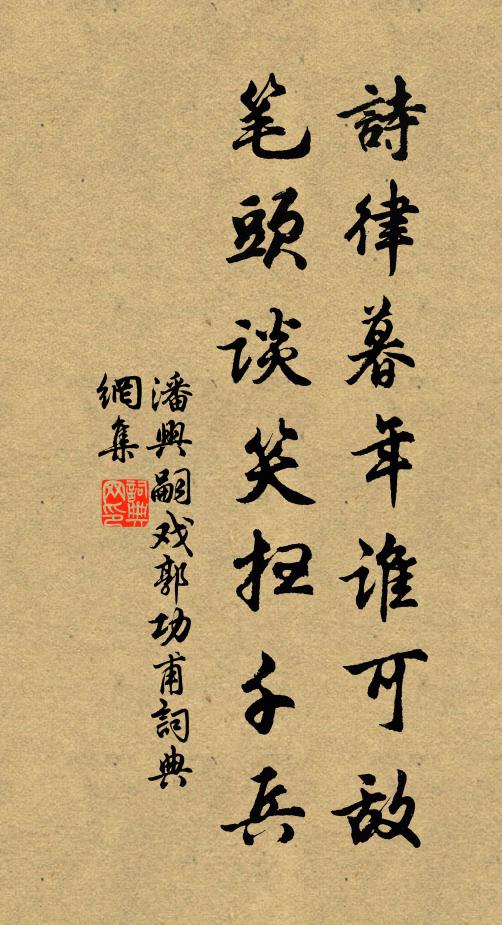 詩律暮年誰可敵
笔頭談笑扫千兵
潘興嗣戏郭功甫詞典
網集
詞典
网印